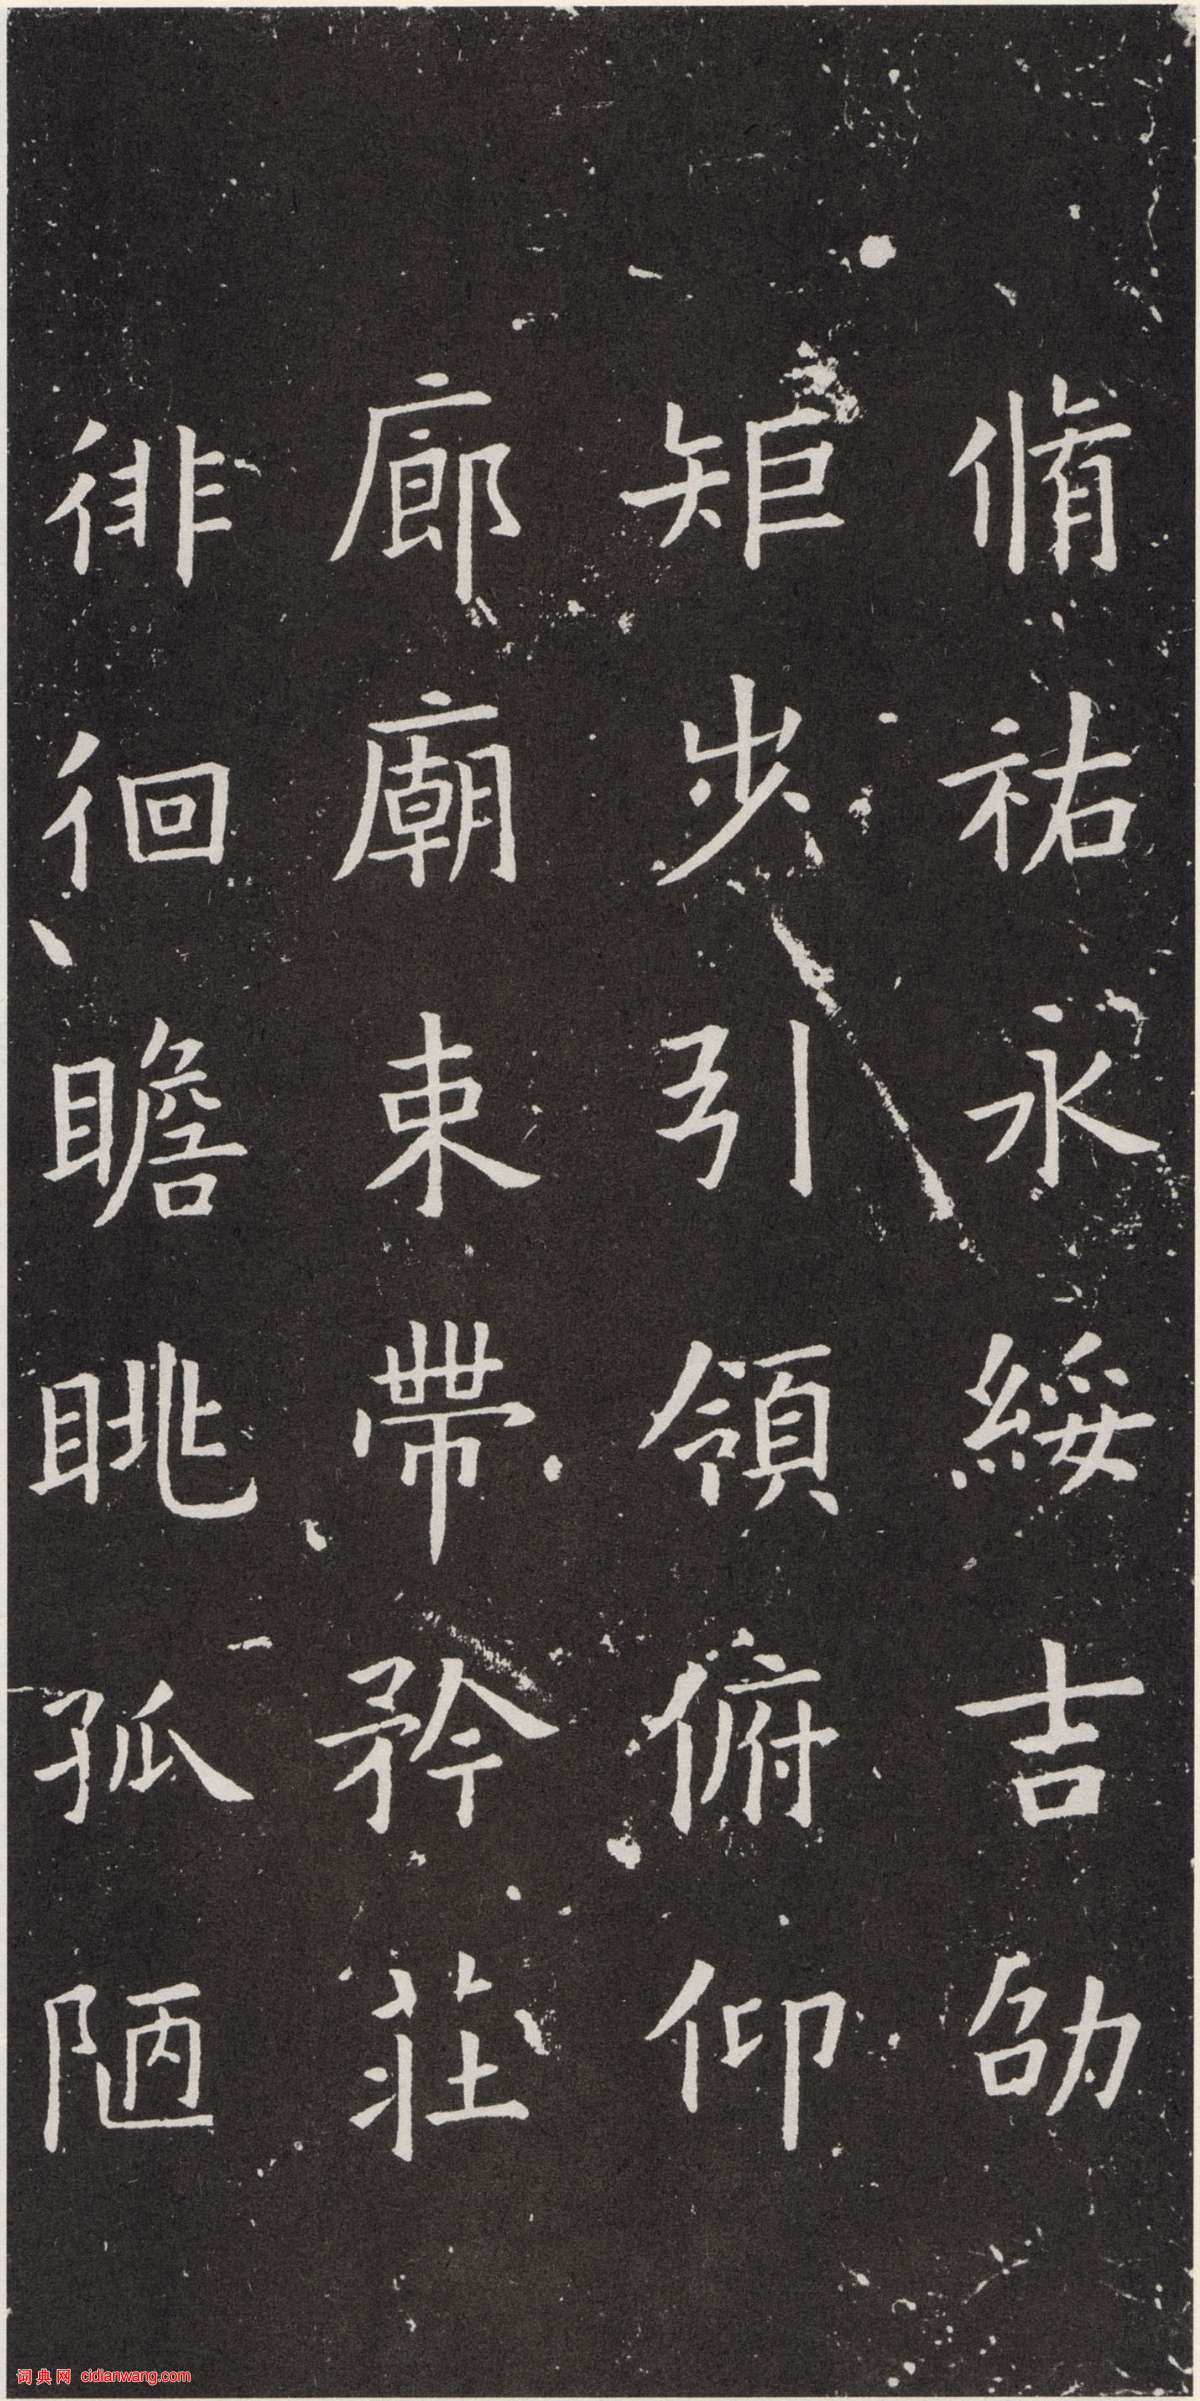 脩祐永綏吉劭
矩步引領俯仰
廊廟束帶矜莊
徘徊瞻眺孤陋
词典网 cidianwang.com